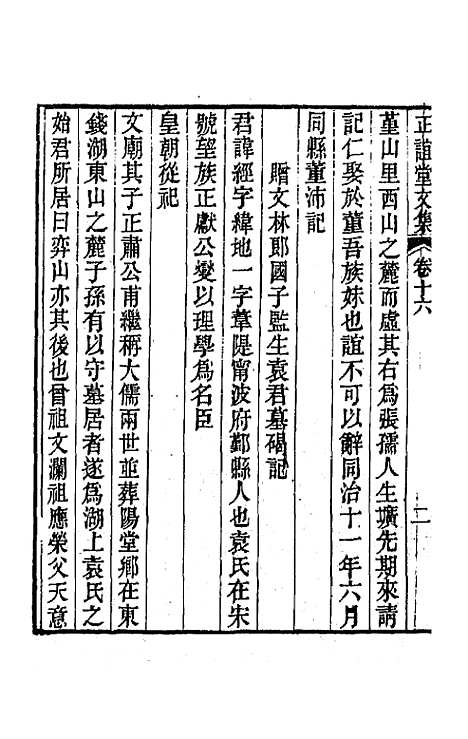 正誼堂文集 卷十六 二
堇山里西山之麓而虛其右爲張孺人生壙先期來請
記仁娶於董吾族妹也誼不可以辭同治十一年六月
同縣董沛記
贈文林郎國子監生袁君墓碣記
君諱經字緯地一字葦隄甯波府鄞縣人也袁氏在宋
號望族正獻公燮以理學爲名臣
皇朝從祀
文廟其子正肅公甫繼稱大儒兩世並葬陽堂鄉在東
錢湖東山之麓子孫有以守墓居者遂爲湖上袁氏之
始君所居曰弈山亦其後也曾祖文瀾祖應榮父天意